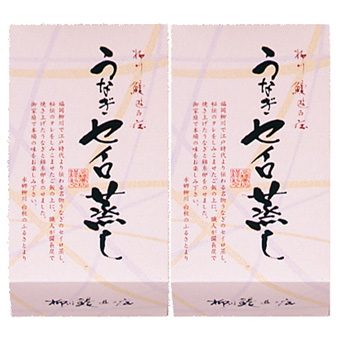 柳川 鰻
うなぎ
セイロ蒸し
福岡柳川で江戸時代より伝わる名物うなぎのセイロ蒸し。
秘伝のタレをしみこませたご飯の上に、職人が備長炭で
焼き上げたうなぎと錦糸卵をのせました。
御家庭で本場の味をお楽しみ下さい。
水郷柳川 白秋のふるさとより
柳川 鰻
柳川 鰻
うなぎ
セイロ蒸し
福岡柳川で江戸時代より伝わる名物うなぎのセイロ蒸し。
秘伝のタレをしみこませたご飯の上に、職人が備長炭で
焼き上げたうなぎと錦糸卵をのせました。
御家庭で本場の味をお楽しみ下さい。
水郷柳川 白秋のふるさとより
柳川 鰻